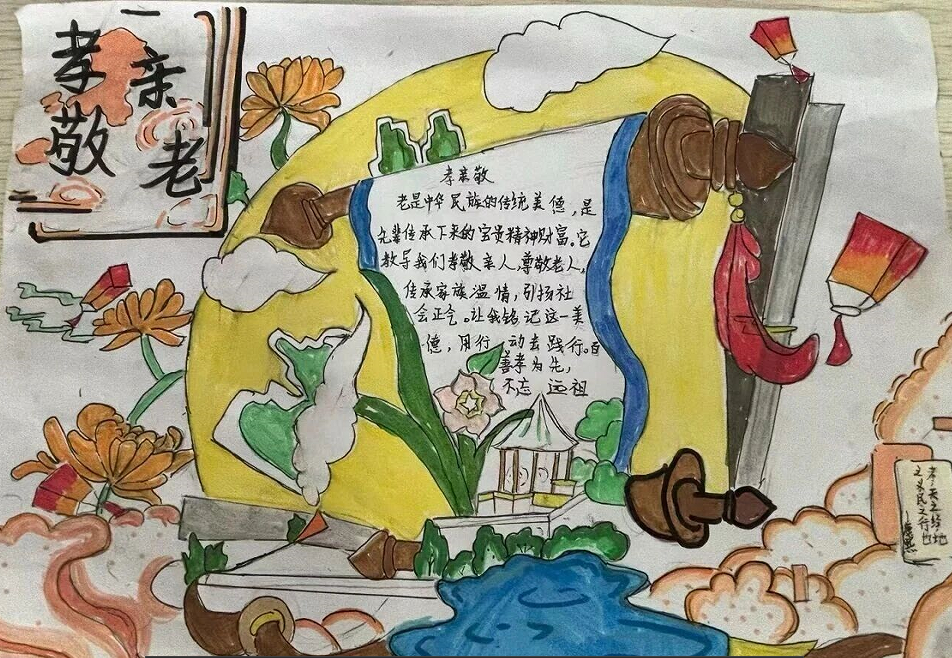 孝亲
敬老
孝亲敬
老是中华民族的传统美德，是
先辈传承下来的宝贵精神财富。它
教导我们孝敬亲人，尊敬老人，
传承家族温情，引扬社
会正气。让我铭记这一美
德，用行动去践行。百
善孝为先，
不忘远祖
孝天之经地
之义民之行也